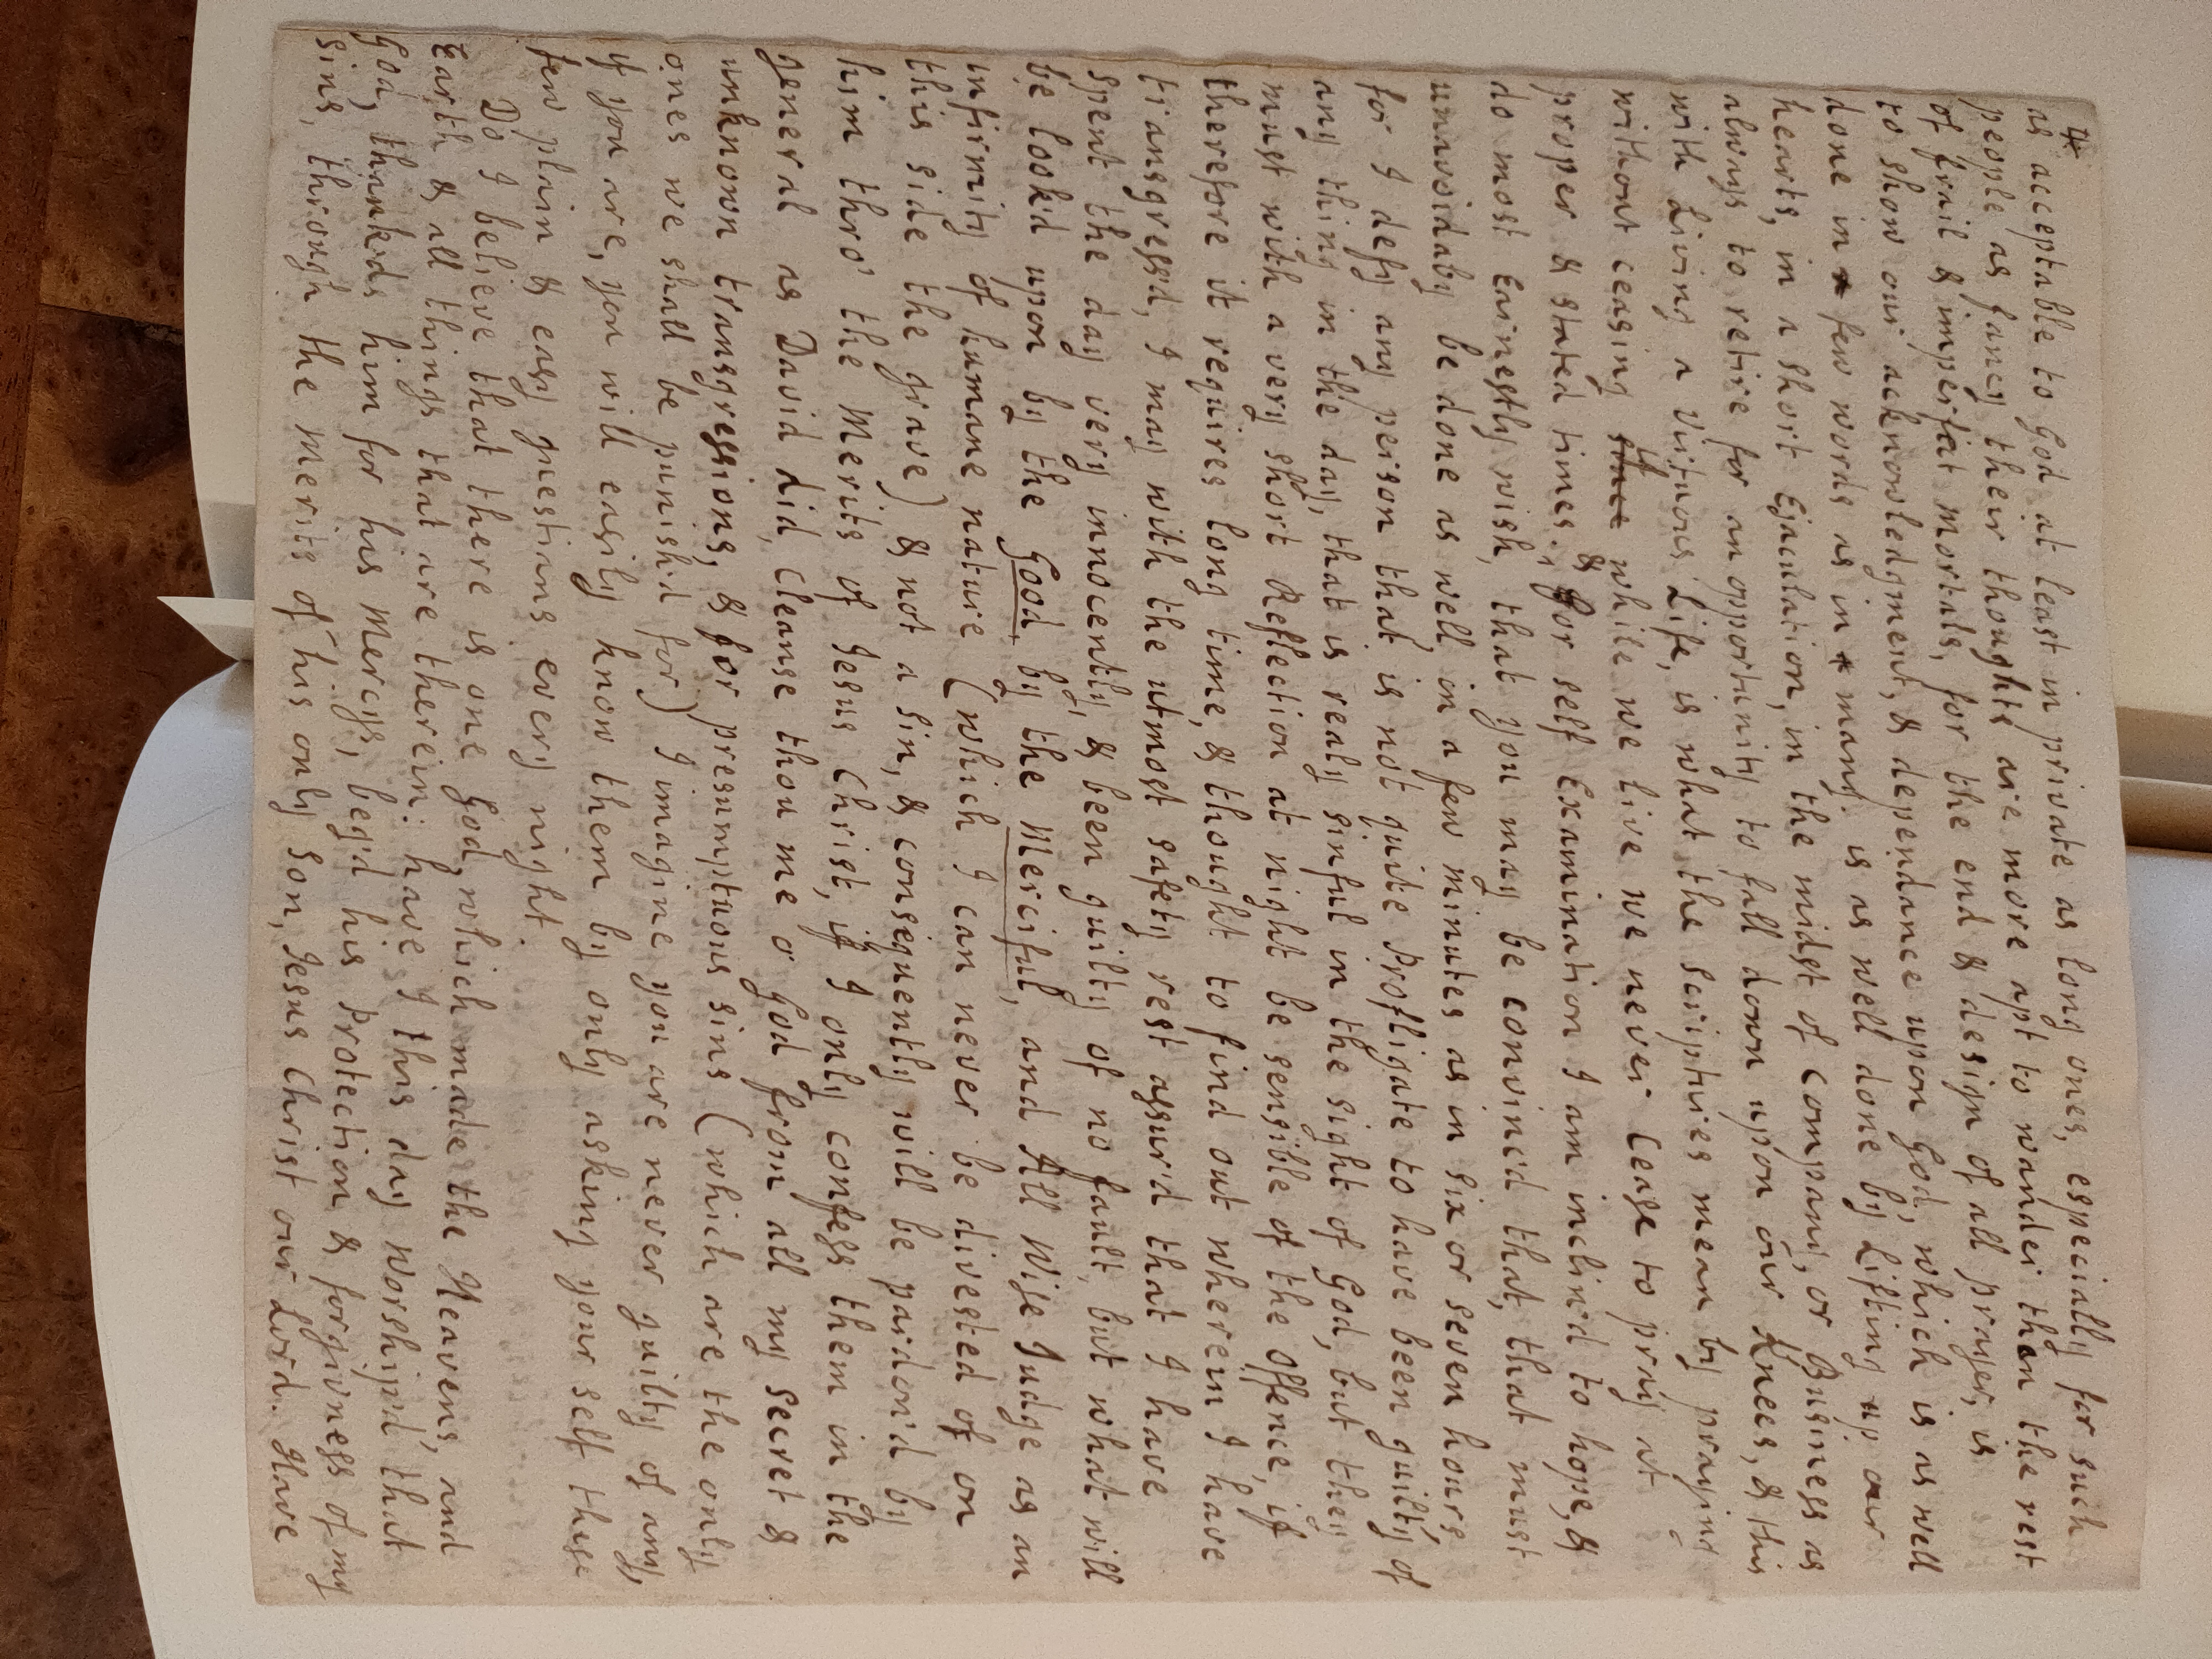 4
as acceptable to God at least in private as long ones, especially for such
people as fancy their thoughts are more apt to wander then the rest
of frail & imperfect mortals, for the end & design of all prayer, is
to show our acknowledgment, & dependance upon God, which is as well
done in a few words as in a many. is as well done by Lifting up our
hearts, in a short Ejaculation, in the midst of company, or Business as
always to retire for an opportunity to fall down upon our Knees, & this
with Living a Virtuous Life, is what the scriptures mean by praying
without ceasing since if while we live we never Cease to pray at
proper & stated times. & For self Examination I am inclin'd to hope, &
do most Earnestly wish, that you may be convinc'd that, that must
unavoidaby be done as well, in a few minutes as in six or seven hours,
for I defy any person that is not quite Profligate to have been guilty of
any thing in the day, that is realy sinful in the sight of God, but they
must with a very short Reflection at night be sensible of the Offence, if
therefore it requires long time, & thought to find out wherein I have
transgress'd, I may with the utmost safety rest assur'd that I have
spent the day very innocently, & been guilty of no fault, but what will
be look'd upon by the Good, by the Merciful, and All Wise Judge as an
infirmity of humane nature (which I can never be divested of on
this side the grave) & not a sin, & consequently will be pardon'd by
him thro' the Merits of Jesus Christ, if I only confess them in the
general as David did, Cleanse thou me o God from all my secret &
unknown transgressions, & for presumptuous sins (which are the only
ones we shall be punish'd for) I imagine you are never guilty of any,
if you are, you will easily know them by only asking your self these
few plain & easy questians every night.
Do I believe that there is one God, which made the Heavens, and
Earth & all things that are therein: have I this day worship'd that
God, thank'ds him for his Mercys, beg'd his Protection & forgivness of my
sins, through the Merits of his only Son, Jesus Christ our Lord. Have